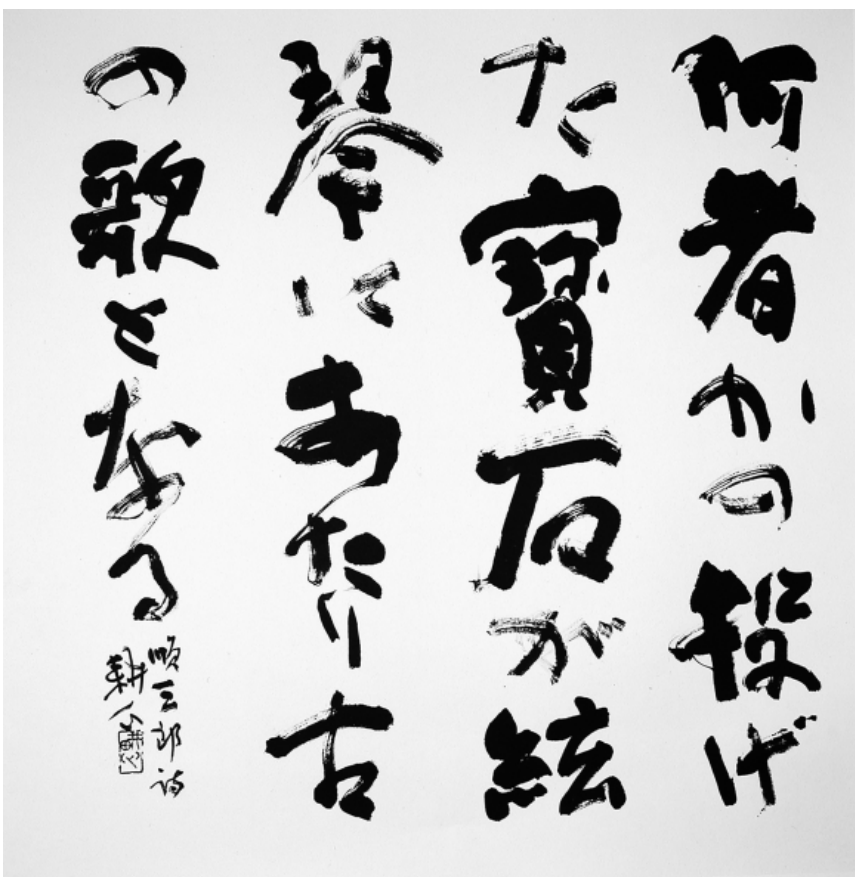 何者かの投げ
た寶石が絃
琴にあたり古
の歌となる
順三郎詩
耕人書